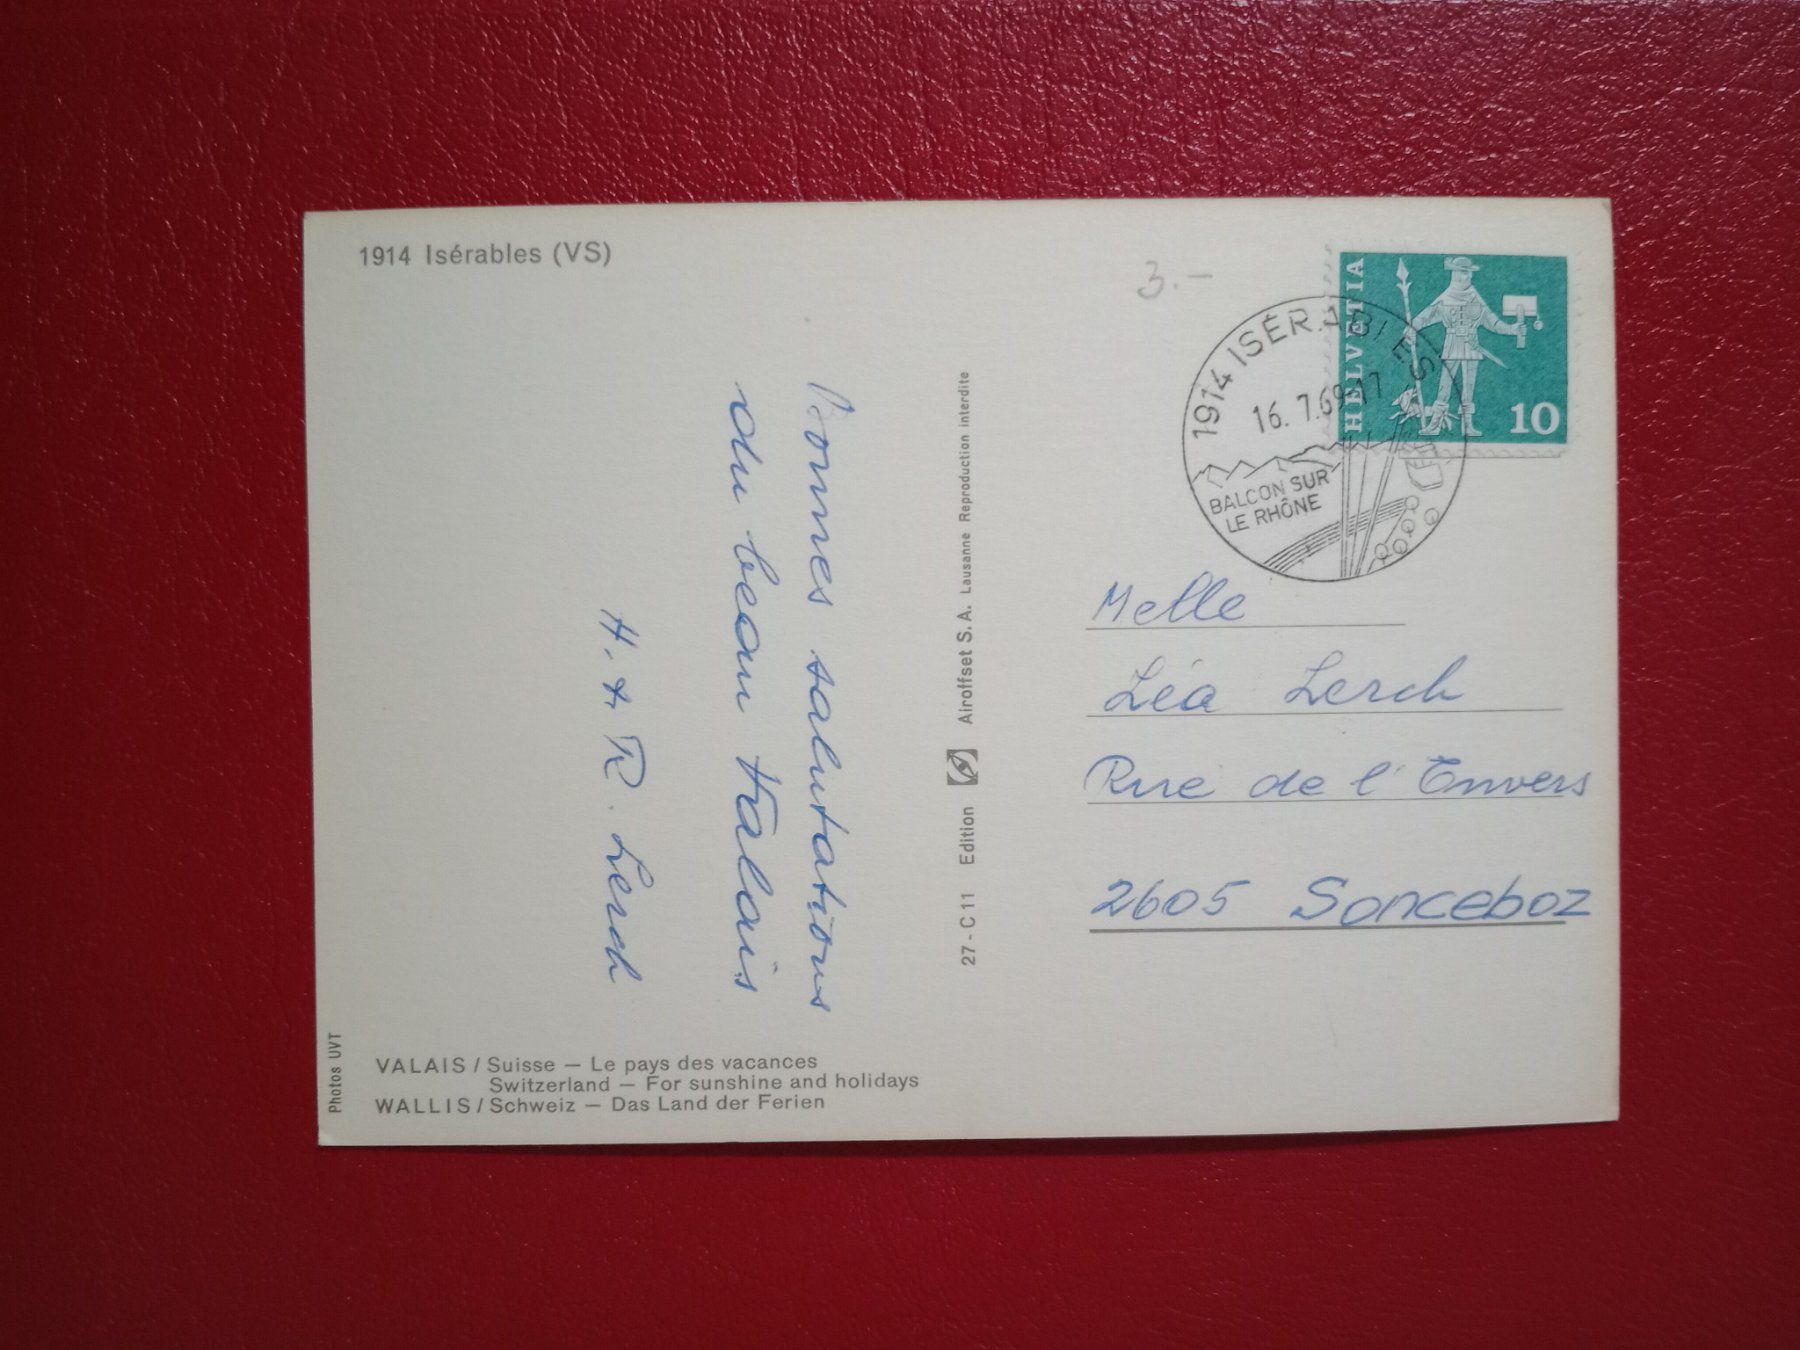 1914 Isérables (VS)
3.–
HELVETIA
10
1914 ISÉRABLES
16.7.69-17
BALCON SUR
LE RHÔNE
Bonnes salutations
du beau Valais
H. + R. Lerch
27 - C 11 Edition Airoffset S.A. Lausanne Reproduction interdite
Melle
Léa Lerch
Rue de l'Envers
2605 Sonceboz
Photos UVT
VALAIS / Suisse – Le pays des vacances
Switzerland – For sunshine and holidays
WALLIS / Schweiz – Das Land der Ferien